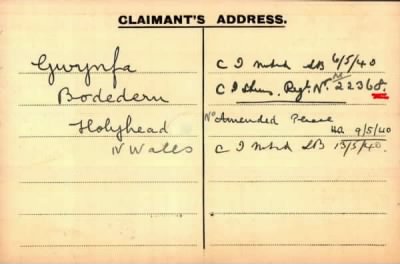 CLAIMANT'S ADDRESS.
Gwynfa
Bodedern
Holyhead
N Wales
C I 6/5/40
C I Regt. No. 22368.
No Amended Please
HQ 9/5/40
C I 13/5/40.